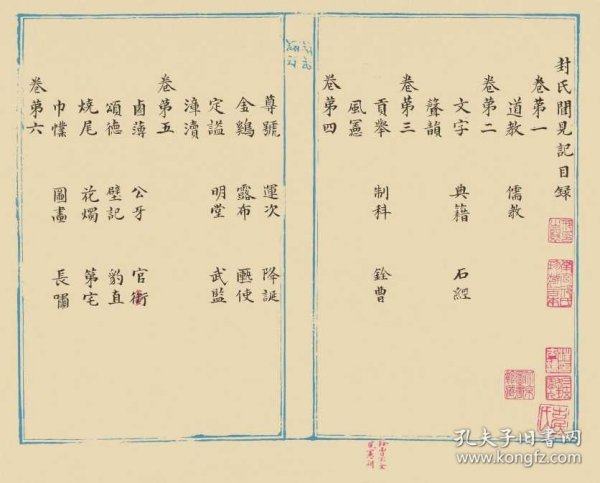 封氏聞見記目録
卷第一
道教 儒教
卷第二
文字 典籍 石經
聲韻
卷第三
貢舉 制科 銓曹
風憲
卷第四
尊號 運次 降誕
金鷄 露布 匭使
定謚 明堂 武監
漳瀆
卷第五
鹵薄 公牙 官銜
頌德 壁記 豹直
燒尾 花燭 第宅
巾幞 圖畫 長嘯
卷第六
孔夫子旧书网
www.kongfz.com